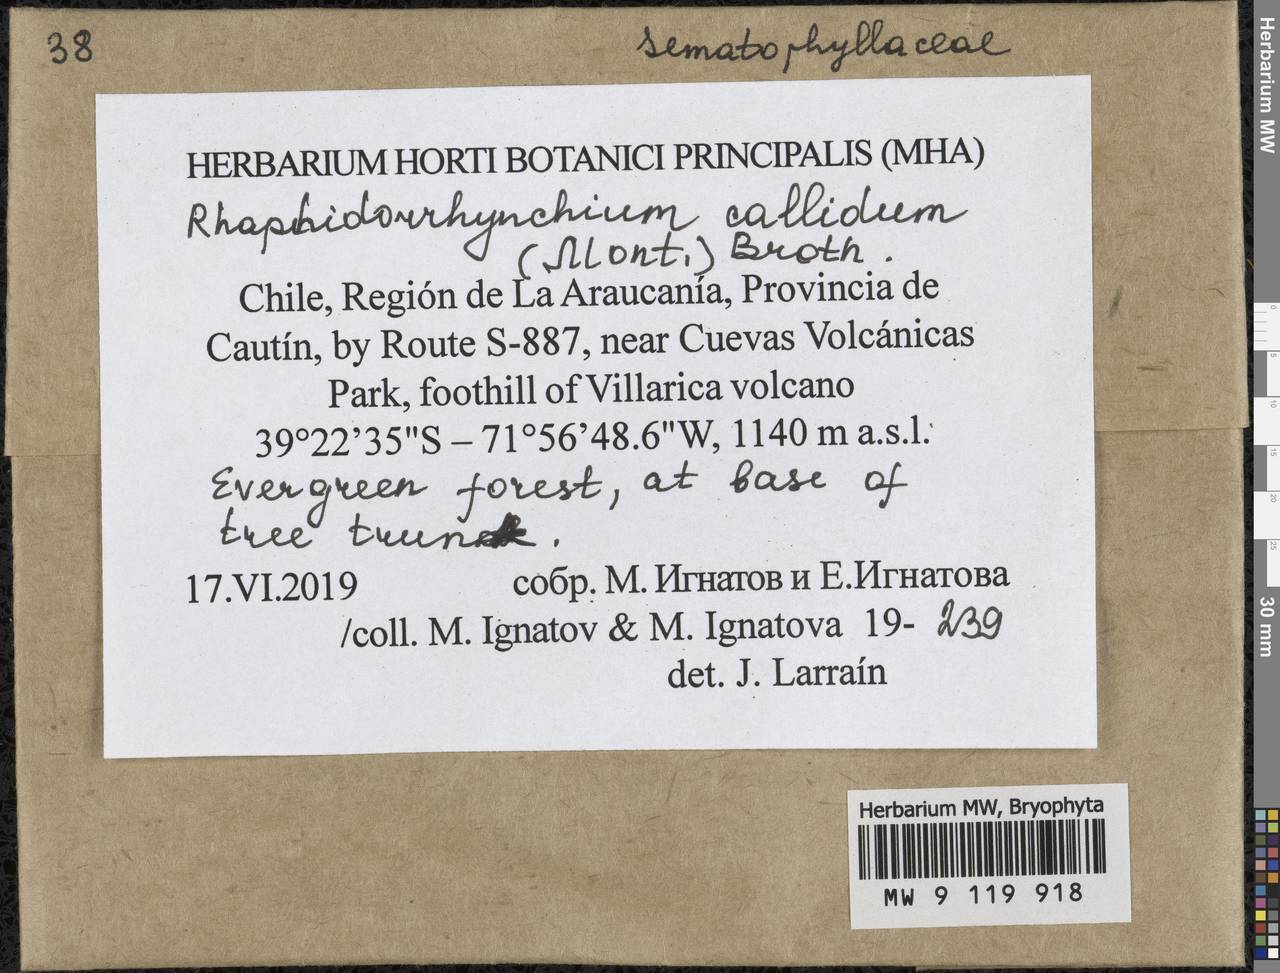 38
Sematophyllaceae
HERBARIUM HORTI BOTANICI PRINCIPALIS (MHA)
Rhaphidorrhynchium callidum
(Mont.) Broth.
Chile, Región de La Araucanía, Provincia de
Cautín, by Route S-887, near Cuevas Volcánicas
Park, foothill of Villarica volcano
39°22’35"S – 71°56’48.6"W, 1140 m a.s.l.
Evergreen forest, at base of
tree trunk.
17.VI.2019 собр. М. Игнатов и Е.Игнатова
/coll. M. Ignatov & M. Ignatova 19- 239
det. J. Larraín
Herbarium MW, Bryophyta
MW 9 119 918
Herbarium MW
0
5
10
15
20
25
30 mm